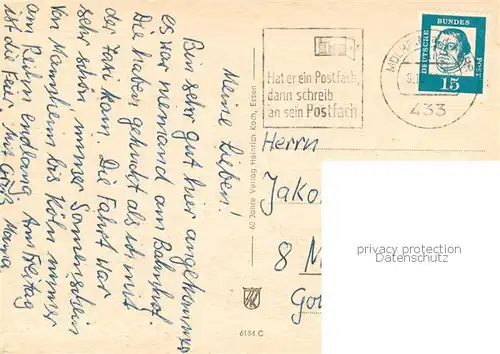 Meine Lieben!
Bin sehr gut hier angekommen
es war niemand am Bahnhof.
Die haben gekuckt als ich mit
der Taxi kam. Die Fahrt war
sehr schön immer Sonnenschein
Von Mannheim bis Köln immer
am Rhein endlang. Am Freitag
ist die Feier. Mit Gruß Mama
60 Jahre Verlag Heinrich Koch, Essen
6184 C
Hat er ein Postfach,
dann schreib
an sein Postfach
433
DEUTSCHE BUNDES POST
15
Herrn
Jako
8 M
privacy protection
Datenschutz